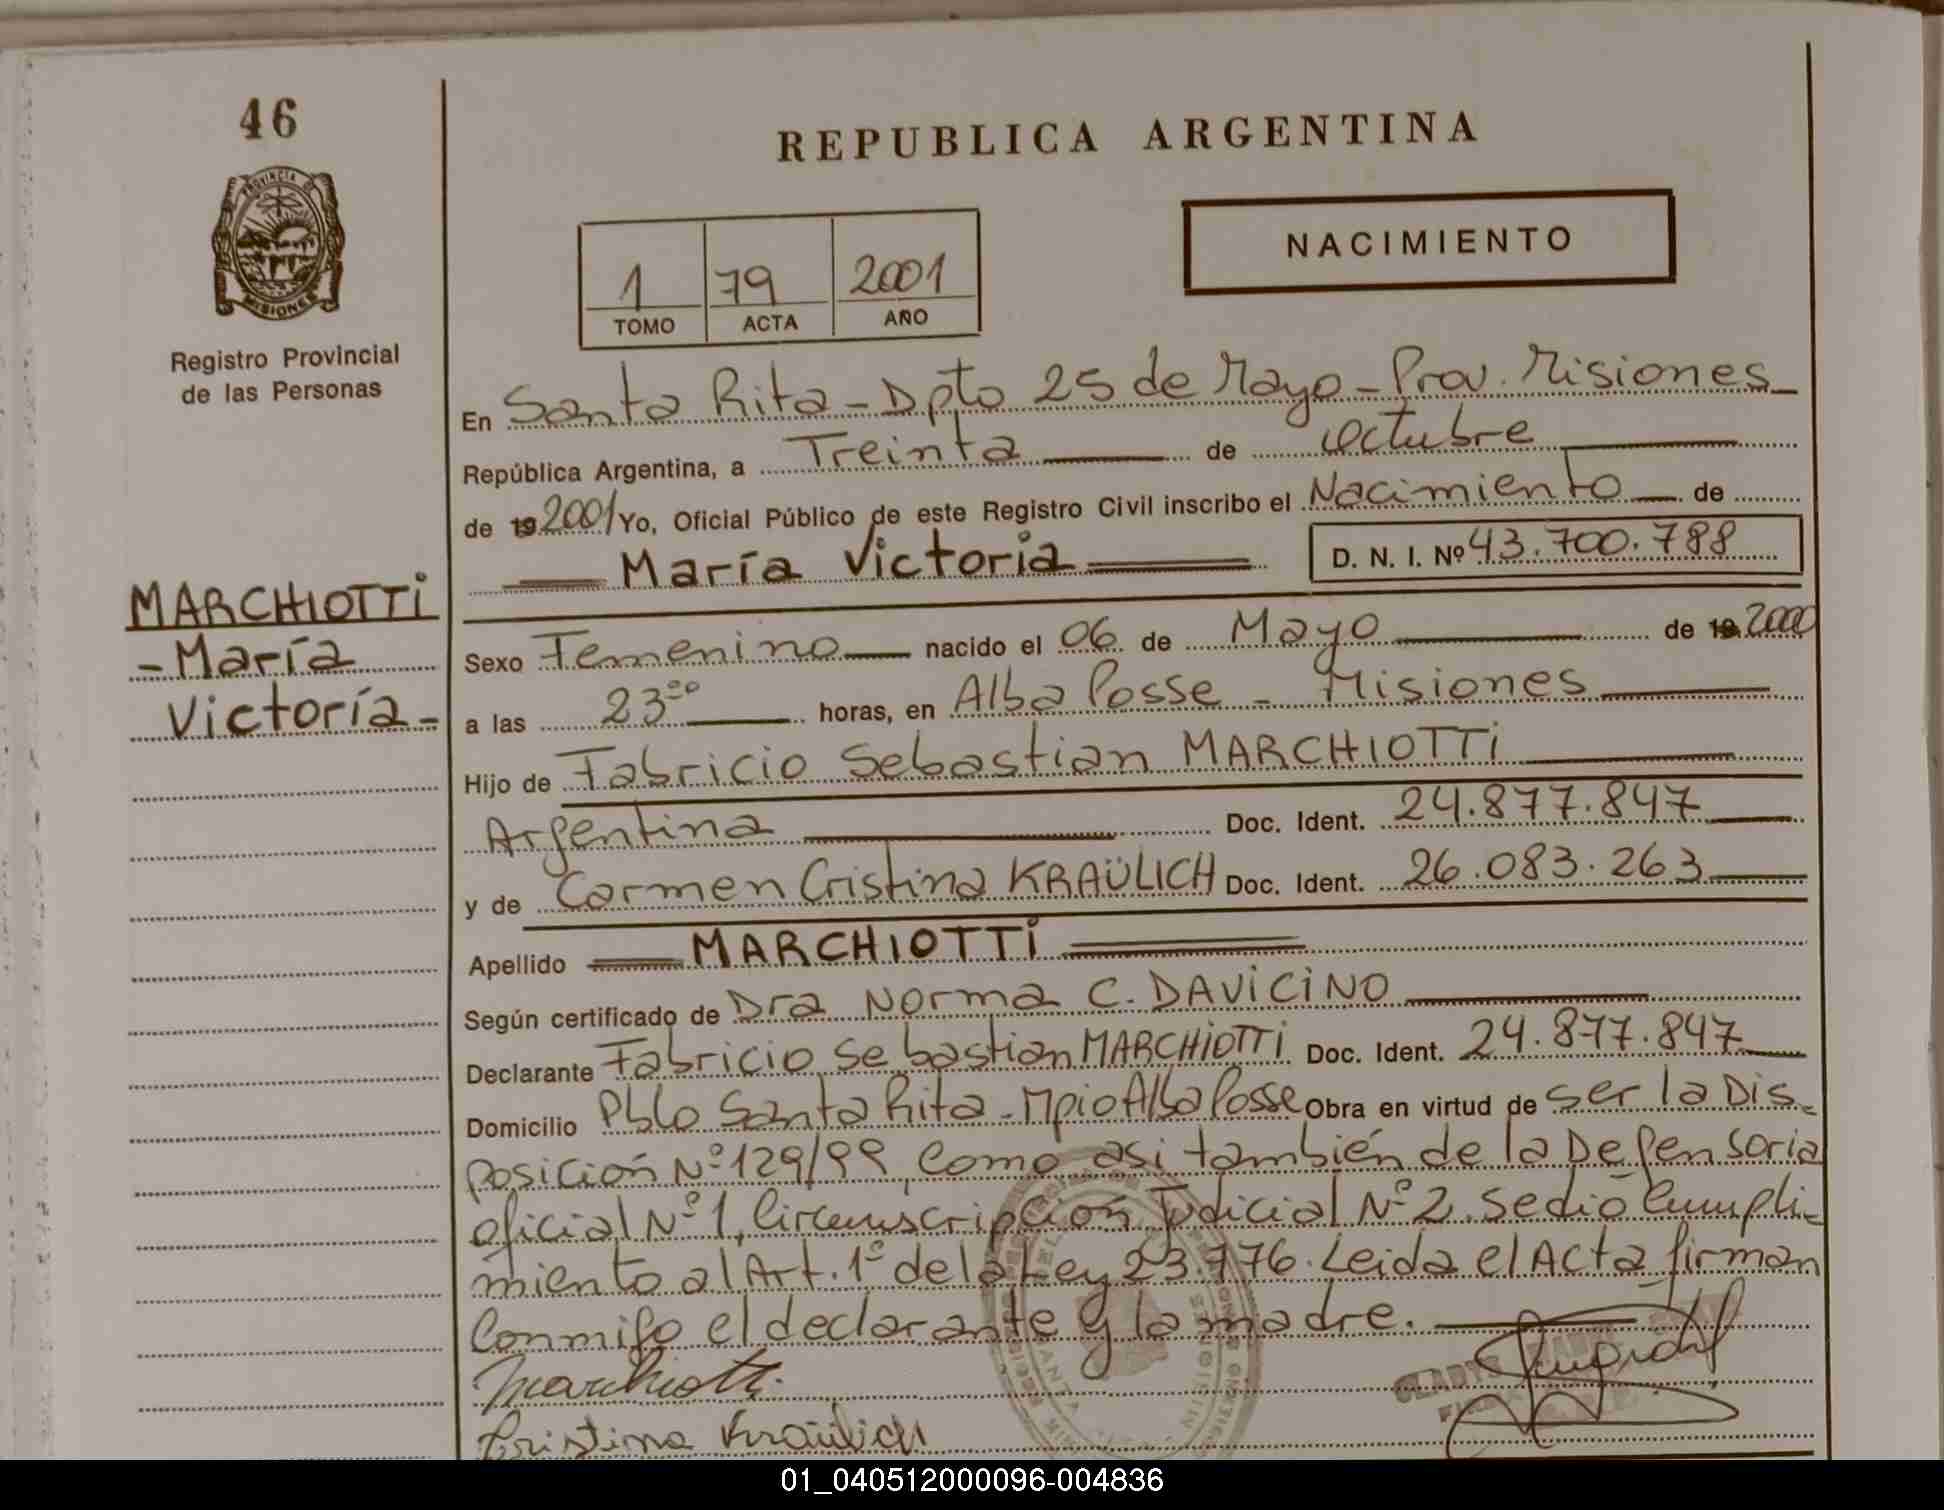 46
PROVINCIA DE
MISIONES
Registro Provincial
de las Personas
MARCHIOTTI
-María
Victoria-
REPUBLICA ARGENTINA
NACIMIENTO
1 79 2001
TOMO ACTA AÑO
En Santa Rita - Dpto 25 de Mayo - Prov. Misiones
República Argentina, a Treinta de octubre
de 19 2001 Yo, Oficial Público de este Registro Civil inscribo el Nacimiento de
María Victoria D. N. I. Nº 43.700.788
Sexo Femenino nacido el 06 de Mayo de 19 2000
a las 23 00 horas, en Alba Posse - Misiones
Hijo de Fabricio Sebastian MARCHIOTTI
Argentina Doc. Ident. 24.877.847
y de Carmen Cristina KRAÜLICH Doc. Ident. 26.083.263
Apellido MARCHIOTTI
Según certificado de Dra Norma C. DAVICINO
Declarante Fabricio Sebastian MARCHIOTTI Doc. Ident. 24.877.847
Domicilio Pblo Santa Rita - Mpio Alba Posse Obra en virtud de ser la Dis-
posición Nº 129/99, como asi también de la Defensoria
oficial Nº 1, Circunscripción Judicial Nº 2. Se dió Cumpli-
miento al Art. 1º de la Ley 23.776. Leida el Acta firman
Conmigo el declarante y la madre.
Marchiotti
Cristina Kraülich
GLADYS
01_040512000096-004836